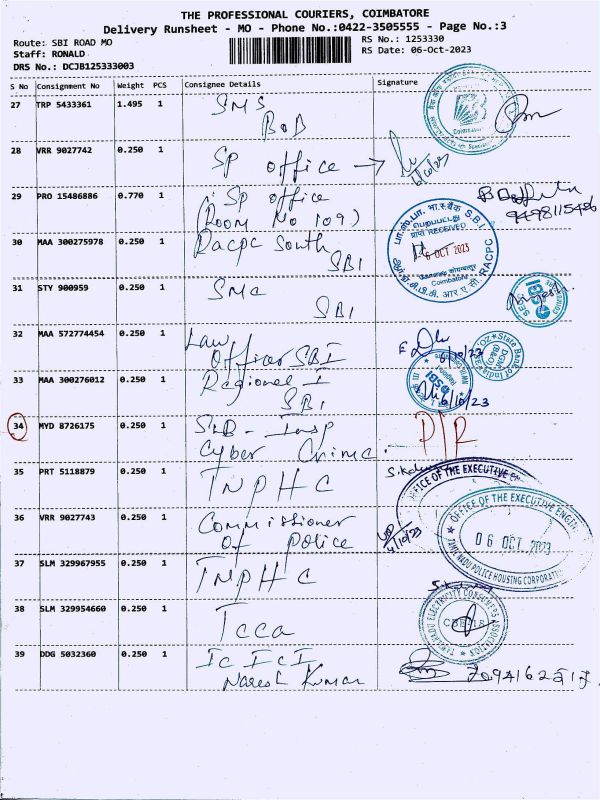 THE PROFESSIONAL COURIERS, COIMBATORE
Delivery Runsheet - MO - Phone No.:0422-3505555 - Page No.:3
Route: SBI ROAD MO
RS No.: 1253330
Staff: RONALD
RS Date: 06-Oct-2023
DRS No.: DCJB125333003
S No Consignment No Weight PCS Consignee Details Signature
27 TRP 5433361 1.495 1 SMS
BOB
28 VRR 9027742 0.250 1 SP office →
6/10/23
29 PRO 15486886 0.770 1 SP office
(Room No 109)
30 MAA 300275978 0.250 1 Racpc South
SBI
RECEIVED
6 OCT 2023
Coimbatore
RACPC
31 STY 900959 0.250 1 SMC
SBI
32 MAA 572774454 0.250 1 Law
Officer SBI
State Bank of
33 MAA 300276012 0.250 1 Regional I
SBI
SBI
6/10/23
34 MYD 8726175 0.250 1 SUB - Insp
Cyber Crime.
D/R
35 PRT 5118879 0.250 1 TNPHC
OFFICE OF THE EXECUTIVE
36 VRR 9027743 0.250 1 Commissioner
of police
OFFICE OF THE EXECUTIVE ENGIN
06 OCT 2023
TAMIL NADU POLICE HOUSING CORPORATION
37 SLM 329967955 0.250 1 TNPHC
38 SLM 329954660 0.250 1 Tcca
TAMILNADU ELECTRICITY CONSUMERS ASSOCIATION
39 DDG 5032360 0.250 1 ICICI
Naresh Kumar